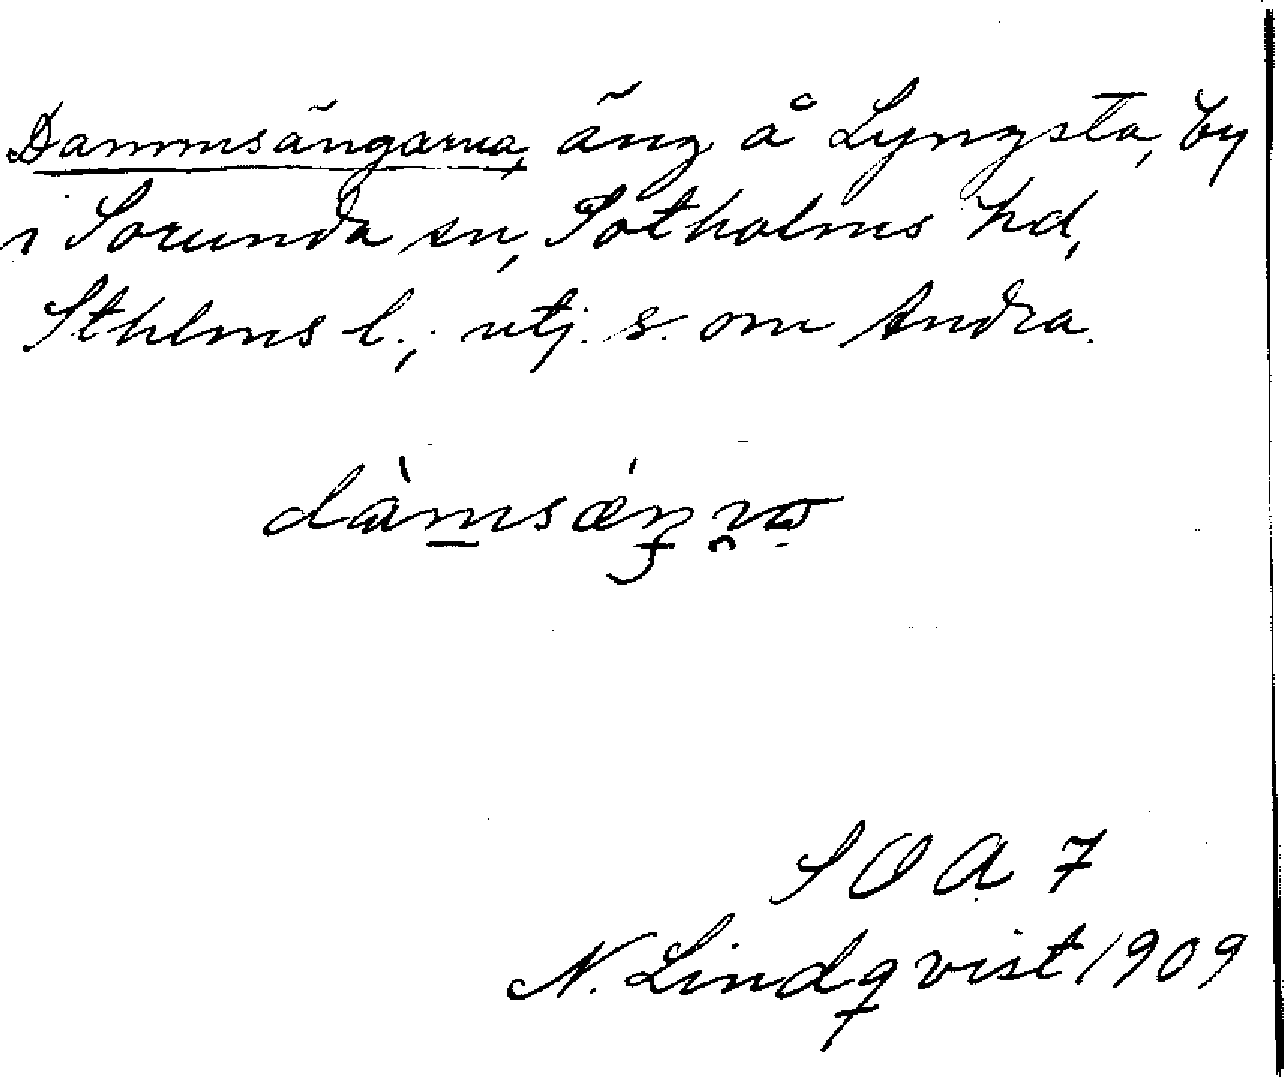 Dammsängarna, äng å Lyngsta, by
i Sorunda sn, Sotholms hd,
Sthlms l.; utj. s. om Andra.
SOA 7
N. Lindqvist 1909